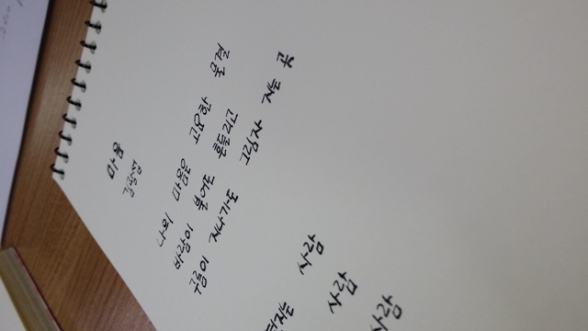 마음
김광섭
나의 마음은 고요한 물결
바람이 불어도 흔들리고
구름이 지나가도 그림자 지는 곳